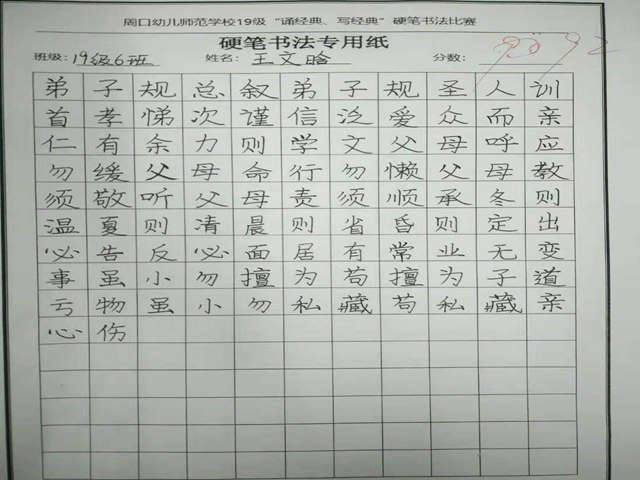 周口幼儿师范学校19级“诵经典、写经典”硬笔书法比赛
硬笔书法专用纸
班级:19级6班 姓名:王文晗 分数: 90 92
弟子规总叙弟子规圣人训
首孝悌次谨信泛爱众而亲
仁有余力则学文父母呼应
勿缓父母命行勿懒父母教
须敬听父母责须顺承冬则
温夏则凊晨则省昏则定出
必告反必面居有常业无变
事虽小勿擅为苟擅为子道
亏物虽小勿私藏苟私藏亲
心伤